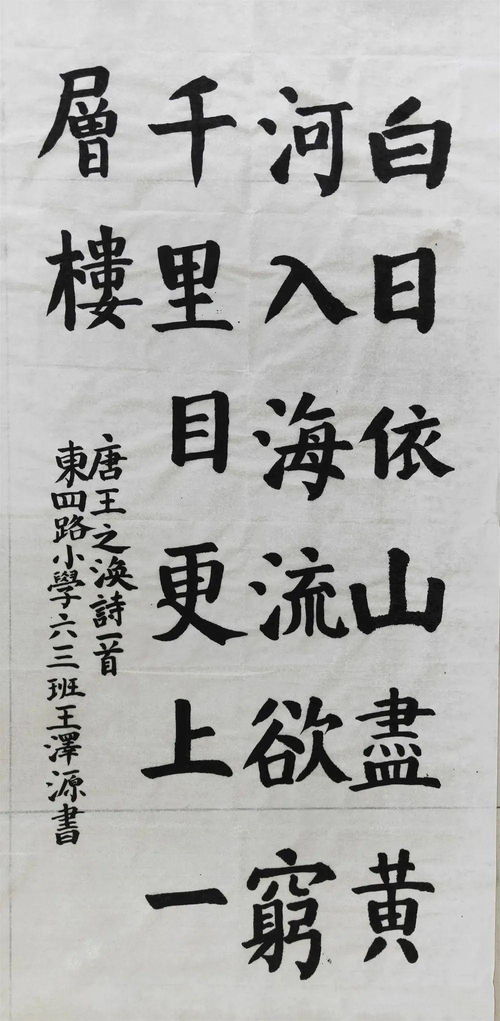 白日依山盡黄
河入海流欲窮
千里目更上一
層樓
唐王之涣詩一首
東四路小學六三班王澤源書